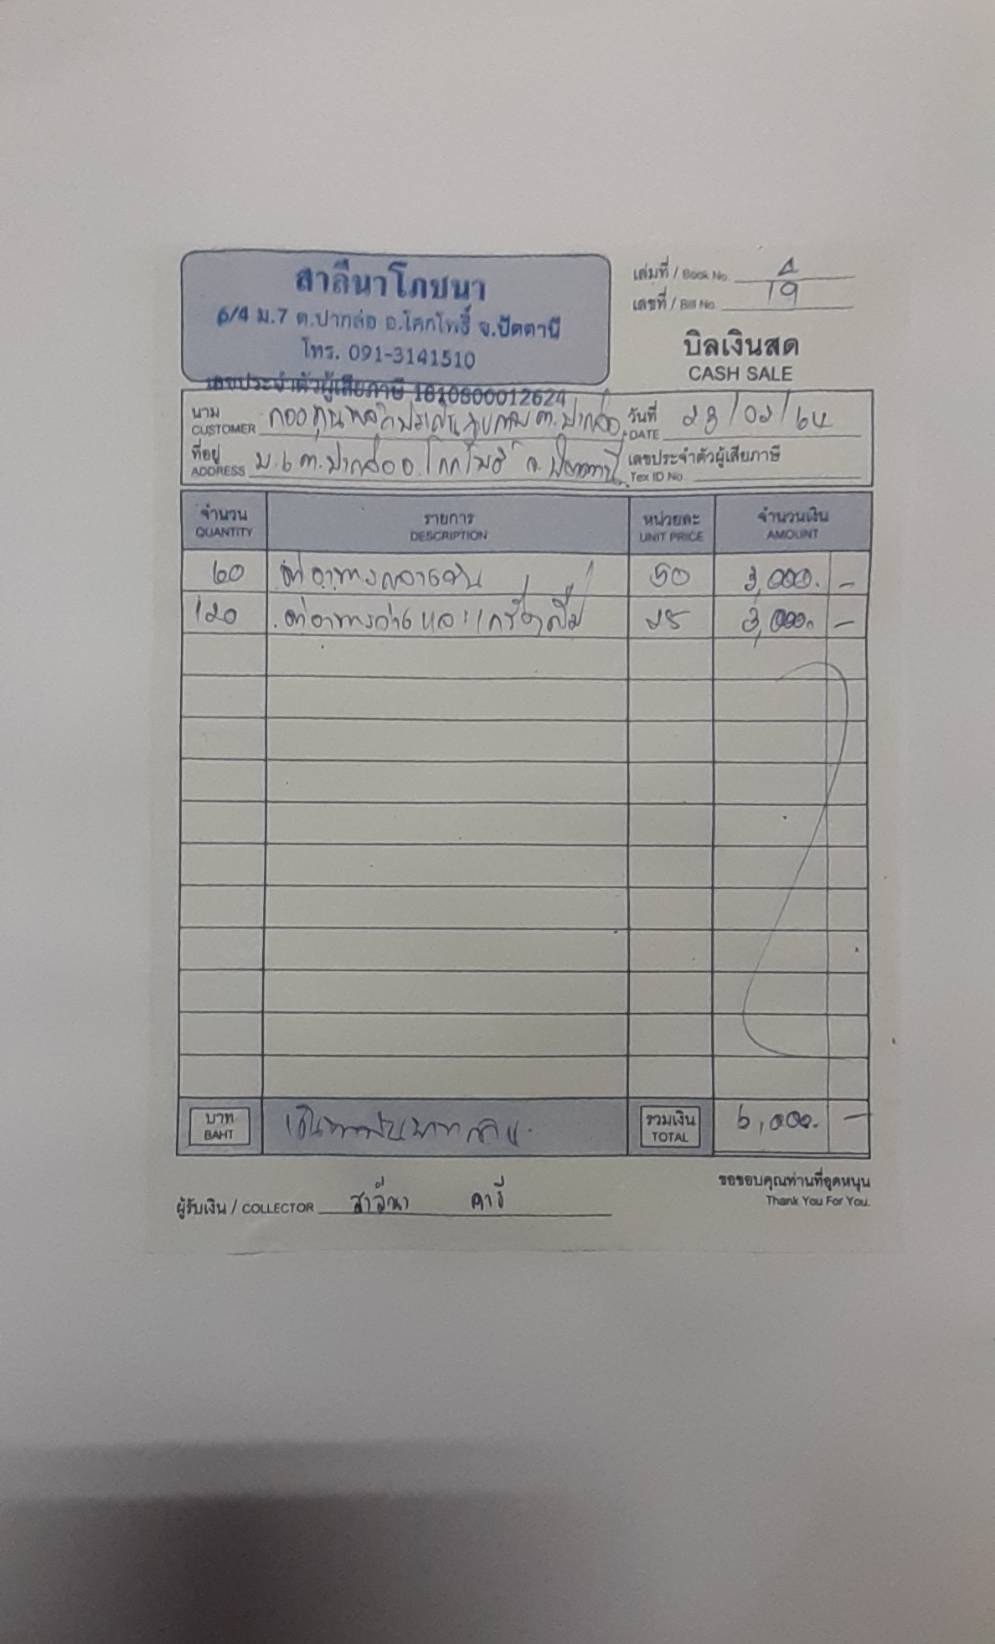 สาลีนาโภชนา
6/4 ม.7 ต.ปากล่อ อ.โคกโพธิ์ จ.ปัตตานี
โทร. 091-3141510
เลขประจำตัวผู้เสียภาษี 1810800012624
เล่มที่ / Book No. 4
เลขที่ / Bill No. 19
บิลเงินสด
CASH SALE
นาม
CUSTOMER กองทุนหลักประกันสุขภาพ ต.ปากล่อ
วันที่
DATE 23/02/64
ที่อยู่
ADDRESS ม.6 ต.ปากล่อ อ.โคกโพธิ์ จ.ปัตตานี
เลขประจำตัวผู้เสียภาษี
Tex ID No.
จำนวน รายการ หน่วยละ จำนวนเงิน
QUANTITY DESCRIPTION UNIT PRICE AMOUNT
60 ค่าอาหารกลางวัน 50 3,000. -
120 ค่าอาหารว่างและเครื่องดื่ม 25 3,000. -
บาท
BAHT
รวมเงิน
TOTAL 6,000. -
ผู้รับเงิน / COLLECTOR สาลีนา
ขอขอบคุณท่านที่อุดหนุน
Thank You For You.